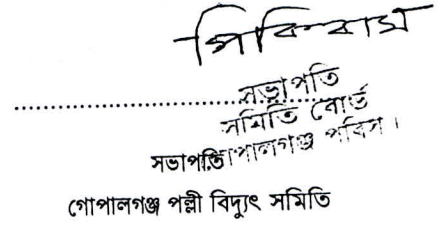 সভাপতি
সমিতি বোর্ড
গোপালগঞ্জ পবিস।
সভাপতি
গোপালগঞ্জ পল্লী বিদ্যুৎ সমিতি